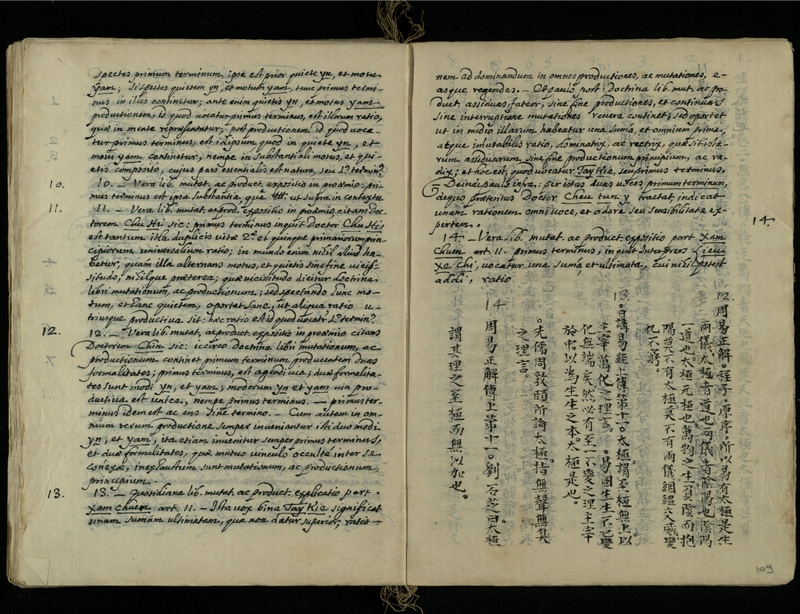 spectes primum terminum, ipse est prior quiete yn, et motu
yam, si spectes quietem yn, et motum yam, tunc primus termi-
nus in illis continetur; ante enim quietis yn, et motus yam
productionem, id quod vocatur primus terminus, est illorum ratio,
quæ in mente repræsentatur; post productionem id quod voca-
tur primus terminus, est id ipsum quod in quiete yn, et
motu yam continetur, nempe in substantiali motus, et qui-
etis composito, cujus pars essentialis est natura, seu 1.us termin.s
10. 10. – Vera lib. mutat. ac product. expositio in proœmio: pri-
mus terminus est ipsa substantia, quæ ut supra in contextu
11. 11. – Vera lib. mutat. ac prod. expositio in proœmio citans doc-
torem Chu Hi sic: primus terminus inquit Doctor Chu Hi
est tantum illa duplicis vitæ 2. et quinque primariorum prin-
cipiorum universalium ratio; in mundo enim nihil aliud ha-
betur, quam illa alternans motus, et quietis sine fine vicissi-
situdo, nihilque præterea; quæ vicissitudo dicitur doctrina
libri mutationum, ac productionum; sed spectando hunc mo-
tum, et hanc quietem, oportet sane, ut aliqua ratio u-
triusque productiva sit: hæc ratio est id quod vocatur 1.us termin.s
12. 12. – Vera lib. mutat. ac product. expositio in proœmio citans
Doctorem Chin sic: iccirco doctrina libri mutationum, ac
productionum continet primum terminum producentem duas
formalitates; primus terminus, est agendi via; duæ formalita-
tes sunt modi yn, et yam; modorum yn et yam via pro-
ductiva est unica, nempe primus terminus. – primus ter-
minus idem est ac ens sine termino. – Cum autem in om-
nium rerum productione semper inveniantur isti duo modi
yn, et yam; ita etiam invenitur semper primus terminus,
et duæ formalitates, quæ mutuo vinculo occulte inter se
conexæ, inexhaustum sunt mutationum, ac productionum
principium.
13. 13. – Quotidiana lib. mutat. ac product. explicatio part.
xam chuen art. 11. – Ista vox bina Tay Kie significat
unam summam ultimatam, qua non datur superior, ratio-
nem ad dominandum in omnes productiones, ac mutationes, e-
asque regendas. – Et paulo post: Doctrina lib. mut. ac pro-
duct. assiduas, fateor, sine fine productiones, et continuas
sine interruptione mutationes revera continet; sed oportet
ut in medio illarum habeatur una summa, et omnium prima,
atque immutabilis ratio, dominatrix, ac rectrix, quæ sit ista-
rum assiduarum sine fine productionum principium, ac ra-
dix; et hoc est, quod vocatur Tay Kie, seu primus terminus.
Deinde paulo infra: per istas duas voces primum terminum,
de quo præcipuus Doctor Cheu tun y tractat indicat
unam rationem omni voce, et odore seu sensibilitate ex-
pertem.
14. 14. – Vera lib. mutat. ac product. expositio part. xam
chuen art. 11. primus terminus, inquit interpres Lieu
xe chi, vocatur una summa et ultimata, cui nihil potest
addi, ratio
12 周易正解。程子。原序。所以易有太極是生
兩儀太極者道也兩儀者陰陽也陰陽
一道也太極无極也萬物之生負陰而抱
陽莫不有太極莫不有兩儀絪縕交感變
化不窮。
13。日講易經上傳第十一。太極謂至極無上以
主宰萬化之理言。 易固生生不已變
化無端矣然必有至一不變之理主宰
於中以為生生之本太極是也。
。先儒周敦頤所論太極指無聲無臭
之理言。
14 周易正解傳上第十一。劉石芝曰太極
謂其理之至極而無以加也。
109